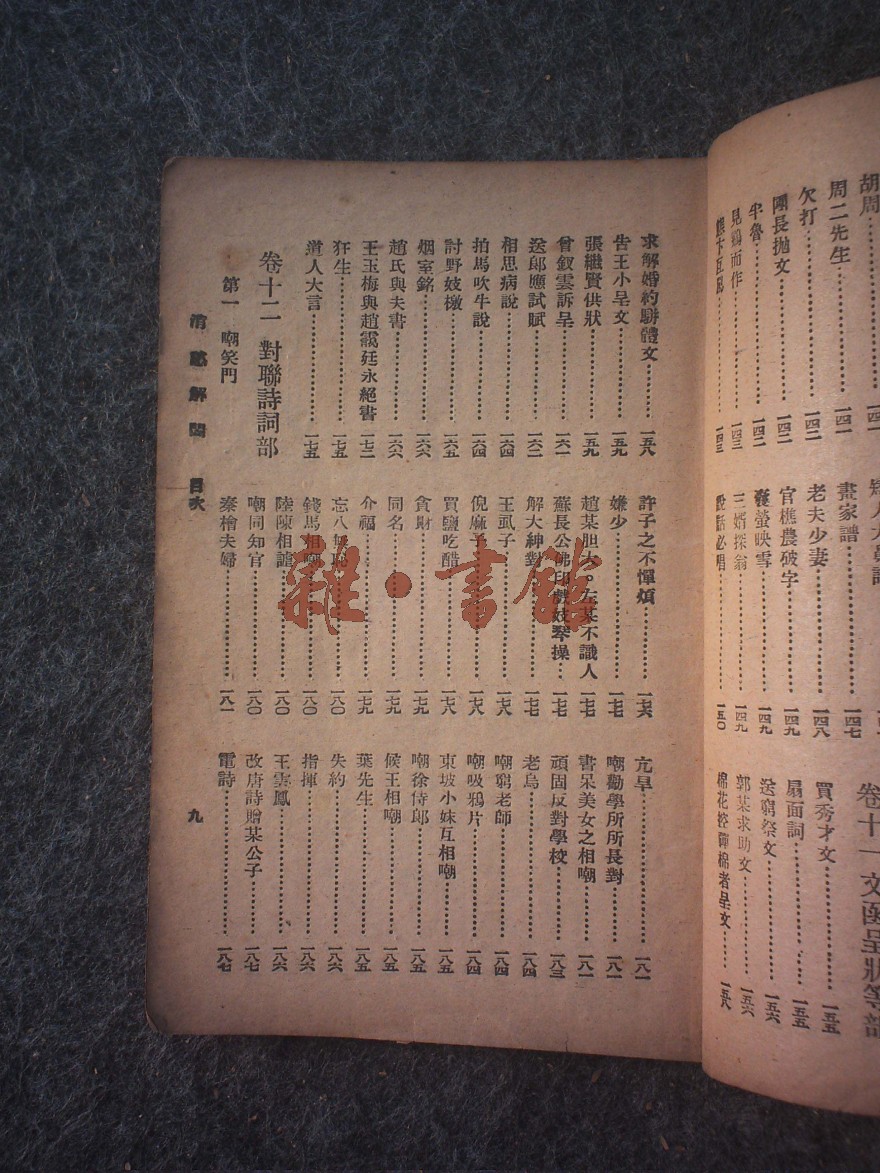 胡周……一四一
周二先生……一四一
欠打……一四二
團長拋文……一四二
半魯……一四二
見鷄而作……一四三
一四三
畫家譜……一四七
老夫少妻……一四八
官樵農破字……一四九
螢映雪……一四九
三婿探翁……一四九
說話必唱……一五〇
卷十一 文函呈狀等部
買秀才文……一五五
扇面詞……一五五
送窮祭文……一五六
郭某求助文……一五六
棉花控彈棉者呈文……一五八
求解婚約駢體文……一五八
告王小呈文……一五九
張繼賢供狀……一五九
曾叙雲訴呈……一六一
送郎應試賦……一六二
相思病說……一六四
拍馬吹牛說……一六四
討野妓檄……一六五
烟室銘……一六六
趙氏與夫書……一六六
王玉梅與趙靄廷永絕書……一七二
狂生……一七五
道人大言……一七五
卷十二 對聯詩詞部
第一 嘲笑門
許子之不憚煩……一七六
嫌少……一七七
趙某胆大。左某不識人……一七七
蘇長公佛印戲妓琴操……一七七
解大紳對……一七七
王虱子……一七八
倪麻子……一七八
買鹽吃醋……一七八
貪財……一七九
同名……一七九
介福……一七九
忘八無恥……一八〇
錢馬相嘲……一八〇
陸陳相謔……一八〇
嘲同知官……一八〇
秦檜夫婦……一八一
亢旱……一八一
嘲勸學所所長對……一八一
書呆美女之相嘲……一八一
頑固反對學校……一八三
老烏……一八四
嘲窮老師……一八四
嘲吸鴉片……一八四
東坡小妹互相嘲……一八五
嘲徐侍郎……一八五
候王相嘲……一八五
葉先生……一八五
失約……一八六
指揮……一八六
王雲鳳……一八六
改唐詩贈某公子……一八七
電詩……一八七
消愁解悶 目次
九
雜·書館